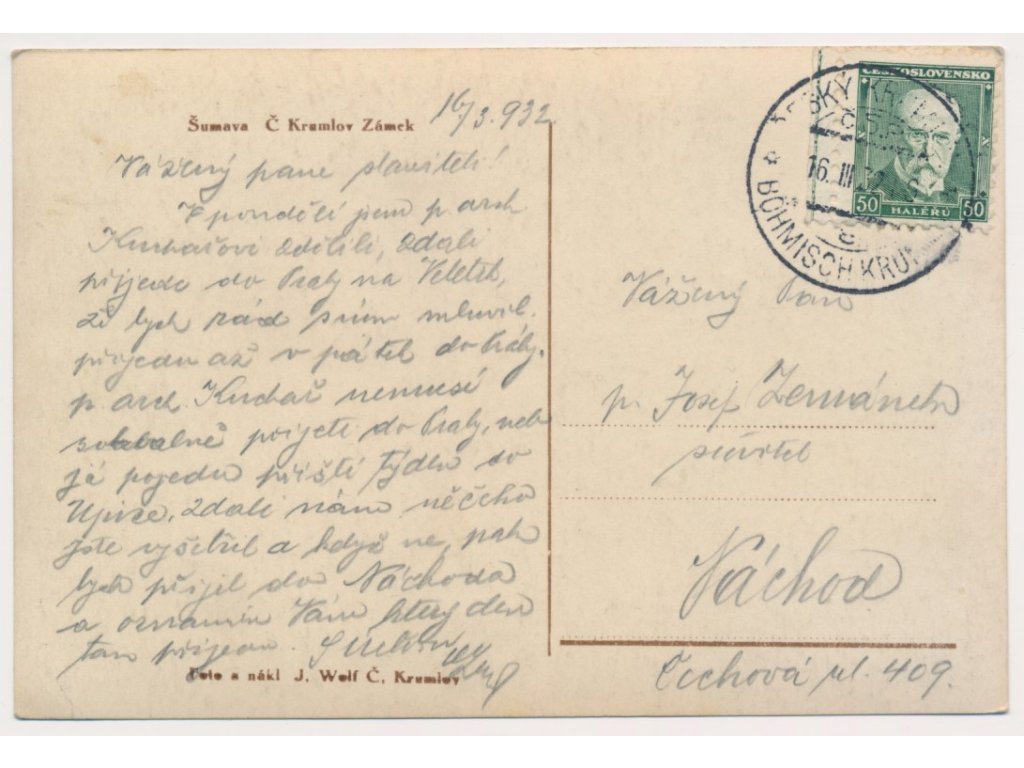 Šumava Č Krumlov Zámek
16/3. 932
Vážený pane staviteli!
V pondělí jsem p. arch
Kuchařovi sdělili, zdali
přijede do Prahy na Veletrh,
že bych rád s ním mluvil.
přijedu až v pátek do Práhy.
p. arch. Kuchař nemusí
přijeti do Prahy, neb
já pojedu příští týden do
Úpice, zdali nám něčeho
jste vyšetřil a když ne, pak
bych přijel do Náchoda
a oznámím Vám který den
tam přijedu.
Foto a nákl J. Wolf Č. Krumlov
ČESKOSLOVENSKO
50 HALÉŘŮ 50
ČESKÝ KRUMLOV
Č.S.R.
16. III. 32
BÖHMISCH KRUMAU
Vážený Pan
p. Josef Zermánek
stavitel
Náchod
Čechová ul. 409.